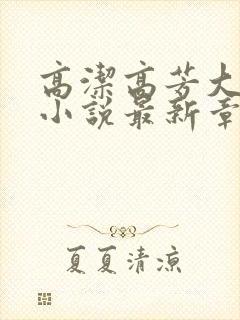 高潔高芳大
小說最新章
夏夏清涼